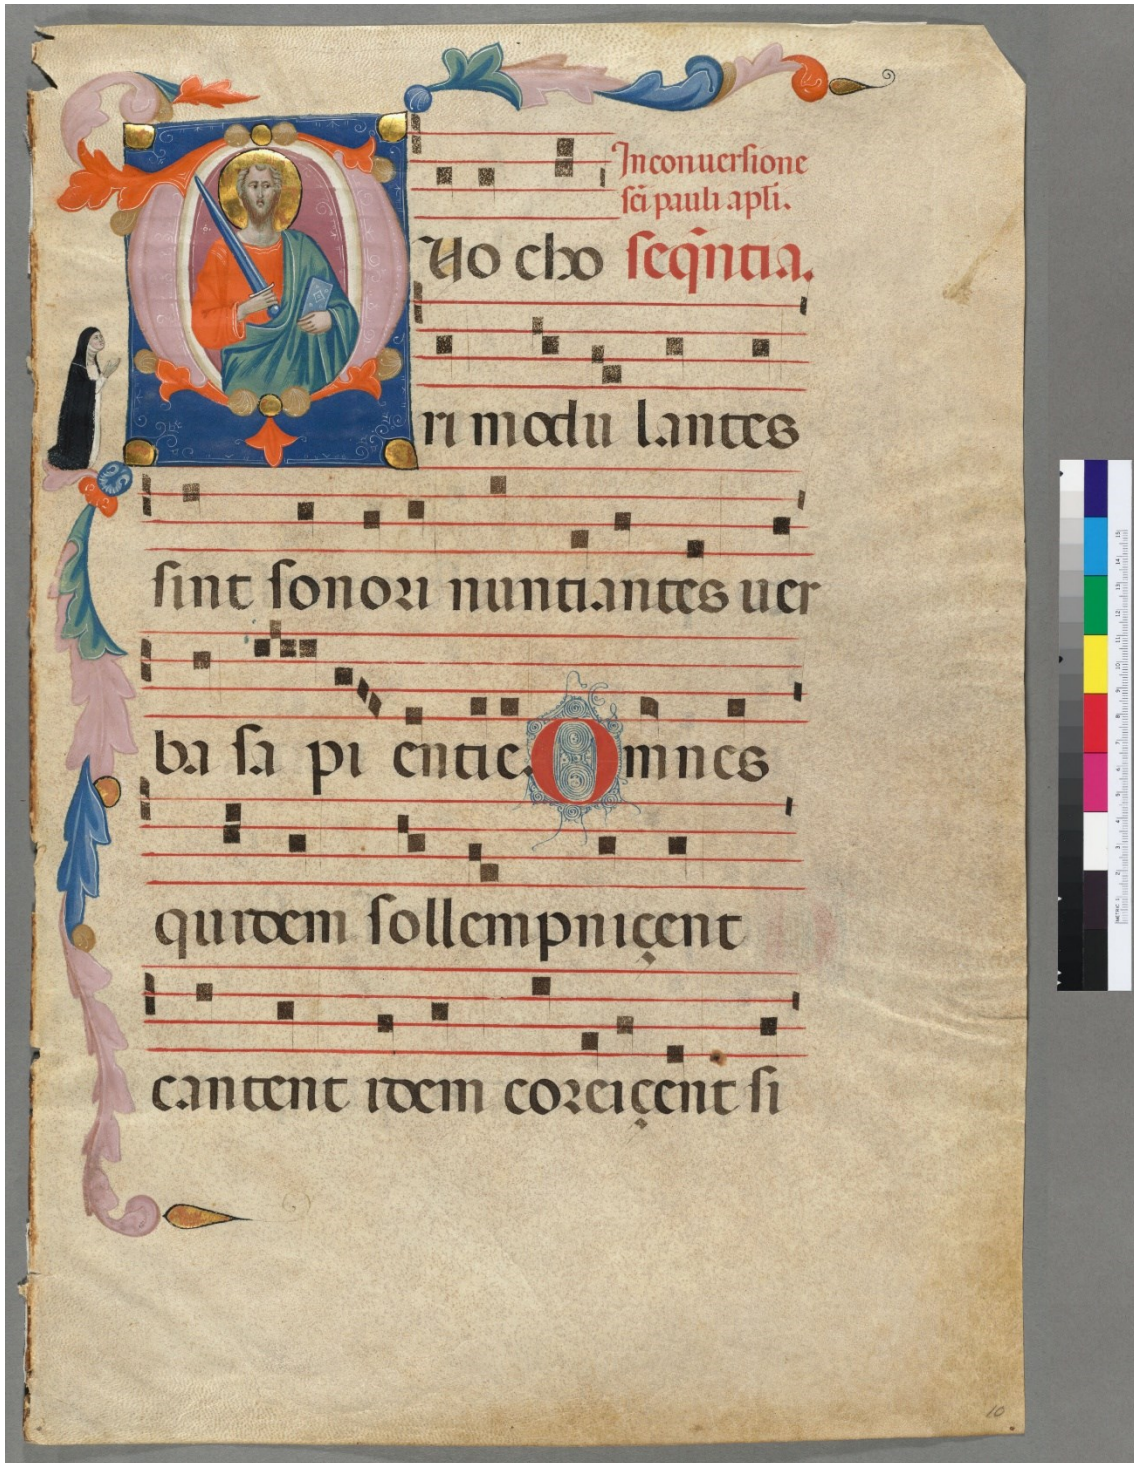 In conuersione
sc̄i pauli apl̄i.
QUo cho seq̄ntia.
ri modu lantes
sint sonori nuntiantes uer
ba sa pi entie. Omnes
quidem sollempniçent
cantent idem coreiçent si
10